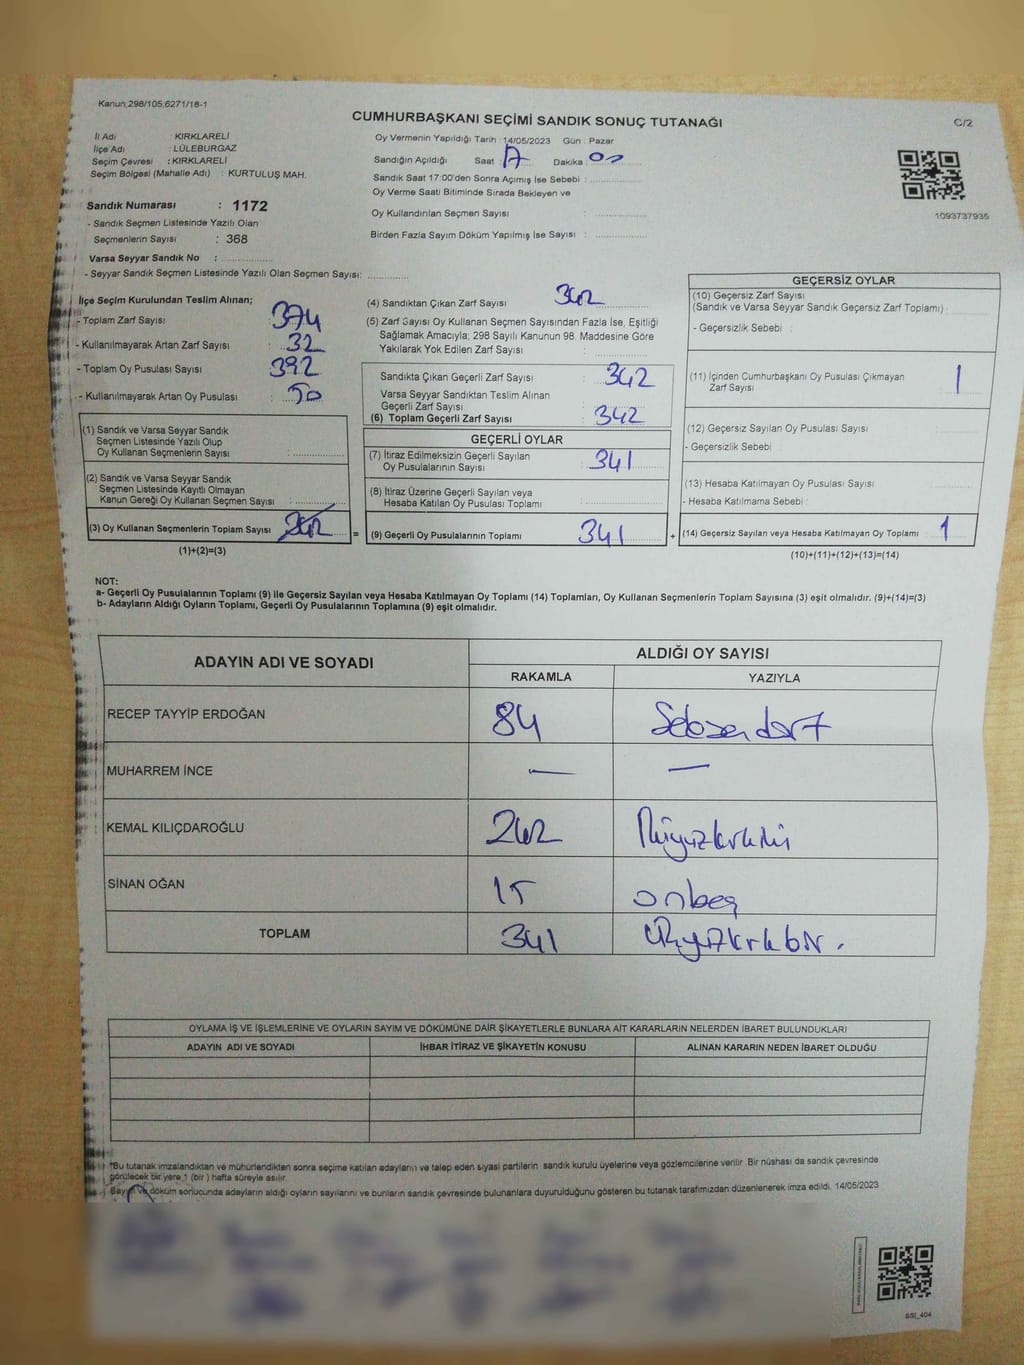 Kanun;298/105;6271/18-1
CUMHURBAŞKANI SEÇİMİ SANDIK SONUÇ TUTANAĞI
C/2
İl Adı : KIRKLARELİ
İlçe Adı : LÜLEBURGAZ
Seçim Çevresi : KIRKLARELİ
Seçim Bölgesi (Mahalle Adı) : KURTULUŞ MAH.
Sandık Numarası : 1172
- Sandık Seçmen Listesinde Yazılı Olan
Seçmenlerin Sayısı : 368
Varsa Seyyar Sandık No :
- Seyyar Sandık Seçmen Listesinde Yazılı Olan Seçmen Sayısı:
Oy Vermenin Yapıldığı Tarih : 14/05/2023 Gün : Pazar
Sandığın Açıldığı Saat : 17 Dakika : 00
Sandık Saat 17:00'den Sonra Açımış İse Sebebi :
Oy Verme Saati Bitiminde Sırada Bekleyen ve
Oy Kullandırılan Seçmen Sayısı :
Birden Fazla Sayım Döküm Yapılmış İse Sayısı :
1093737935
İlçe Seçim Kurulundan Teslim Alınan;
- Toplam Zarf Sayısı : 374
- Kullanılmayarak Artan Zarf Sayısı : 32
- Toplam Oy Pusulası Sayısı : 392
- Kullanılmayarak Artan Oy Pusulası : 50
(1) Sandık ve Varsa Seyyar Sandık
Seçmen Listesinde Yazılı Olup
Oy Kullanan Seçmenlerin Sayısı :
(2) Sandık ve Varsa Seyyar Sandık
Seçmen Listesinde Kayıtlı Olmayan
Kanun Gereği Oy Kullanan Seçmen Sayısı :
(3) Oy Kullanan Seçmenlerin Toplam Sayısı : 342
(1)+(2)=(3)
(4) Sandıktan Çıkan Zarf Sayısı : 342
(5) Zarf Sayısı Oy Kullanan Seçmen Sayısından Fazla İse, Eşitliği
Sağlamak Amacıyla; 298 Sayılı Kanunun 98. Maddesine Göre
Yakılarak Yok Edilen Zarf Sayısı :
Sandıkta Çıkan Geçerli Zarf Sayısı : 342
Varsa Seyyar Sandıktan Teslim Alınan
Geçerli Zarf Sayısı :
(6) Toplam Geçerli Zarf Sayısı : 342
GEÇERLİ OYLAR
(7) İtiraz Edilmeksizin Geçerli Sayılan
Oy Pusulalarının Sayısı : 341
(8) İtiraz Üzerine Geçerli Sayılan veya
Hesaba Katılan Oy Pusulası Toplamı :
= (9) Geçerli Oy Pusulalarının Toplamı : 341
GEÇERSİZ OYLAR
(10) Geçersiz Zarf Sayısı
(Sandık ve Varsa Seyyar Sandık Geçersiz Zarf Toplamı) :
- Geçersizlik Sebebi :
(11) İçinden Cumhurbaşkanı Oy Pusulası Çıkmayan
Zarf Sayısı : 1
(12) Geçersiz Sayılan Oy Pusulası Sayısı :
- Geçersizlik Sebebi :
(13) Hesaba Katılmayan Oy Pusulası Sayısı :
- Hesaba Katılmama Sebebi :
+ (14) Geçersiz Sayılan veya Hesaba Katılmayan Oy Toplamı : 1
(10)+(11)+(12)+(13)=(14)
NOT:
a- Geçerli Oy Pusulalarının Toplamı (9) ile Geçersiz Sayılan veya Hesaba Katılmayan Oy Toplamı (14) Toplamları, Oy Kullanan Seçmenlerin Toplam Sayısına (3) eşit olmalıdır. (9)+(14)=(3)
b- Adayların Aldığı Oyların Toplamı, Geçerli Oy Pusulalarının Toplamına (9) eşit olmalıdır.
ADAYIN ADI VE SOYADI
ALDIĞI OY SAYISI
RAKAMLA YAZIYLA
RECEP TAYYİP ERDOĞAN 84 Seksendört
MUHARREM İNCE — —
KEMAL KILIÇDAROĞLU 242 İkiyüzkırkiki
SİNAN OĞAN 15 onbeş
TOPLAM 341 üçyüzkırkbir.
OYLAMA İŞ VE İŞLEMLERİNE VE OYLARIN SAYIM VE DÖKÜMÜNE DAİR ŞİKAYETLERLE BUNLARA AİT KARARLARIN NELERDEN İBARET BULUNDUKLARI
ADAYIN ADI VE SOYADI İHBAR İTİRAZ VE ŞİKAYETİN KONUSU ALINAN KARARIN NEDEN İBARET OLDUĞU
*Bu tutanak imzalandıktan ve mühürlendikten sonra seçime katılan adayların ve talep eden siyasi partilerin sandık kurulu üyelerine veya gözlemcilerine verilir. Bir nüshası da sandık çevresinde
görülecek bir yere 1 (bir) hafta süreyle asılır.
Sayım ve döküm sonucunda adayların aldığı oyların sayılarını ve bunların sandık çevresinde bulunanlara duyurulduğunu gösteren bu tutanak tarafımızdan düzenlenerek imza edildi. 14/05/2023
SSI_404